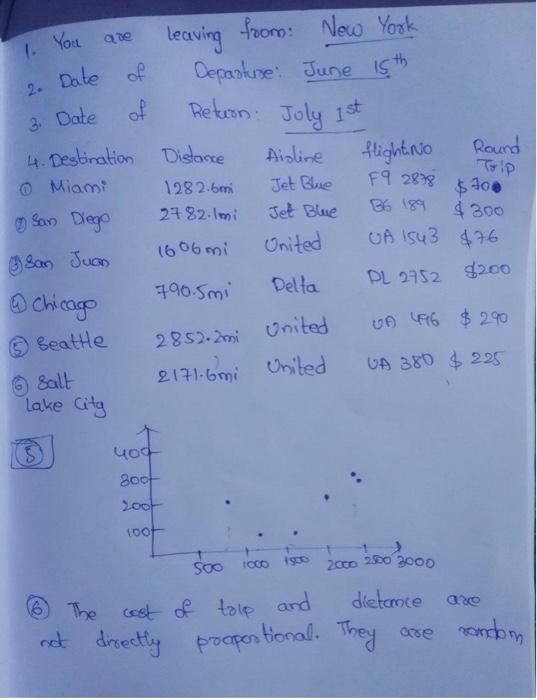 1. You are leaving from: New York
2. Date of Departure: June 15th
3. Date of Return: July 1st
4. Destination Distance Airline flight No Round Trip
① Miami 1282.6mi Jet Blue F9 2878 $70
② San Diego 2782.1mi Jet Blue B6 189 $300
③ San Juan 1606mi United UA 1543 $76
④ Chicago 790.5mi Delta DL 2752 $200
⑤ Seattle 2852.2mi United UA 496 $290
⑥ Salt Lake City 2171.6mi United UA 380 $225
5
400
300
200
100
500 1000 1500 2000 2500 3000
⑥ The cost of trip and distance are
not directly proportional. They are random